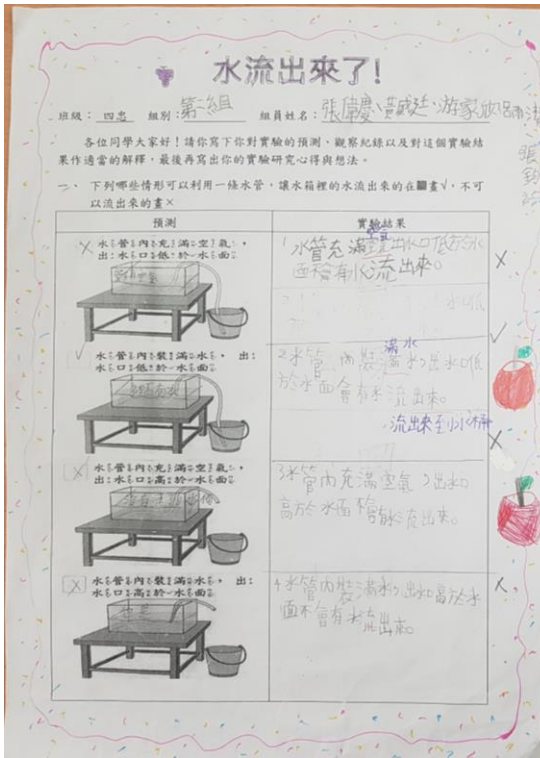 水流出來了!
班級： 四忠 組別：第二組 組員姓名：張偉慶、黃威廷、游家欣、
各位同學大家好！請你寫下你對實驗的預測、觀察紀錄以及對這個實驗結
果作適當的解釋，最後再寫出你的實驗研究心得與想法。
一、 下列哪些情形可以利用一條水管，讓水箱裡的水流出來的在 畫√，不可
以流出來的畫×
預測 實驗結果
× 水管內充滿空氣，
出水口低於水面
1 水管充滿空氣出水口低於水
面不會有水流出來。
×
√ 水管內裝滿水，出
水口低於水面
2 水管內裝滿水，出水口低
於水面會有水流出來。
流出來至小水桶
√
× 水管內充滿空氣，
出水口高於水面
3 水管內充滿空氣，出水口
高於水面不會有水流出來。
×
× 水管內裝滿水，出
水口高於水面
4 水管內裝滿水，出水口高於水
面不會有水流出來。
×